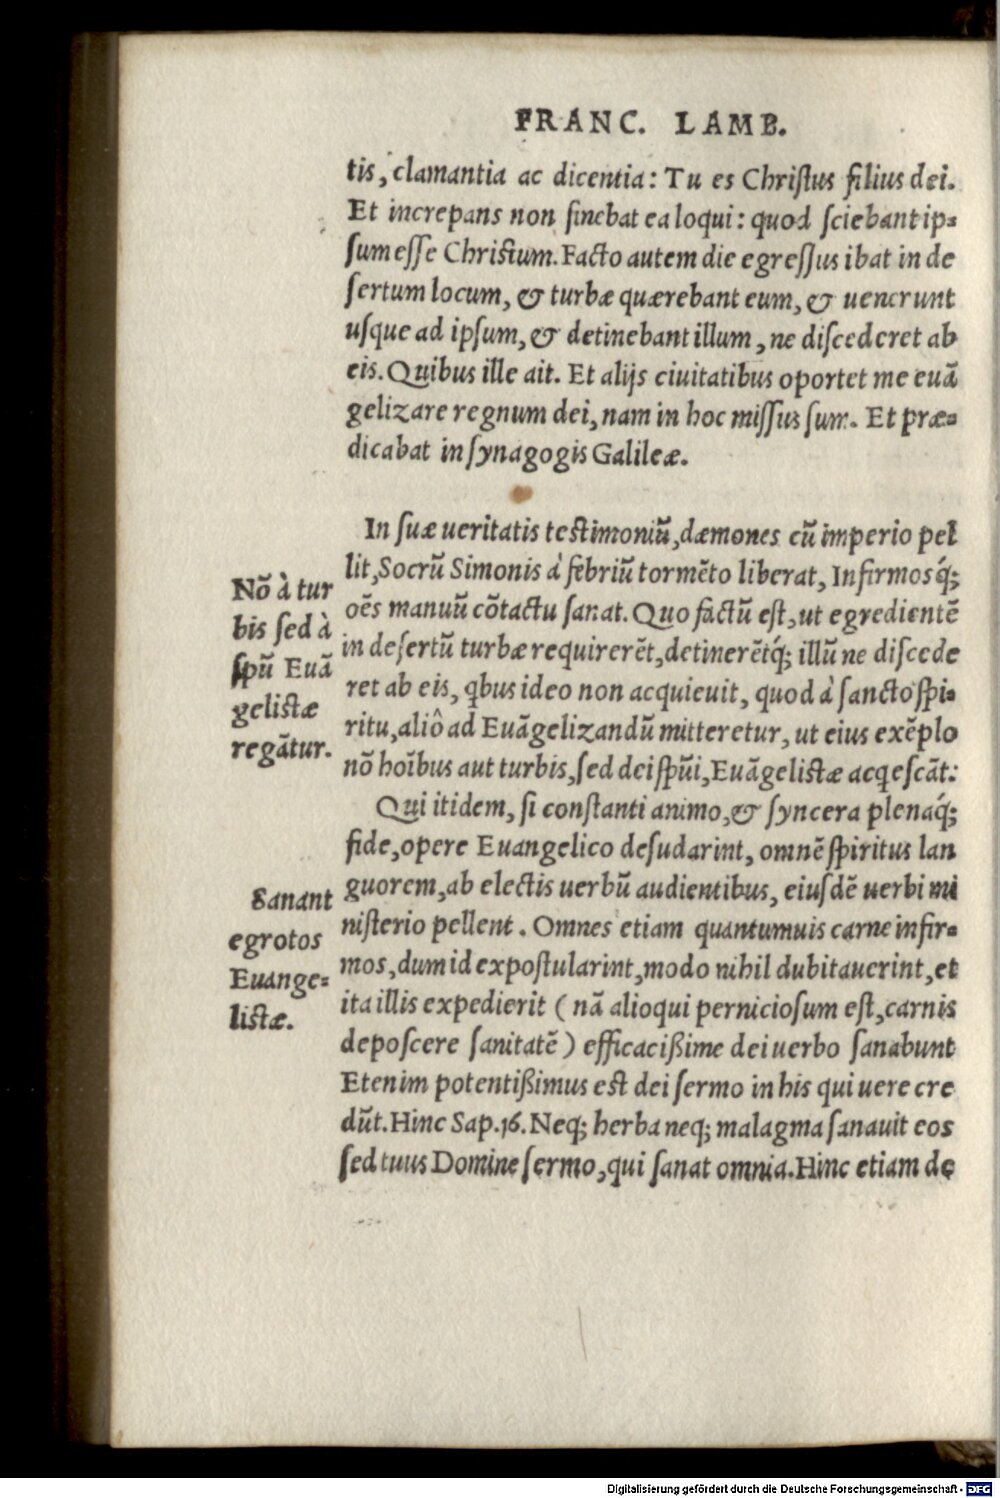 FRANC. LAMB.
tis, clamantia ac dicentia: Tu es Chriſtus filius dei.
Et increpans non ſinebat ea loqui: quod ſciebant ip=
ſum eſſe Chriſtum. Facto autem die egreſſus ibat in de
ſertum locum, & turbæ quærebant eum, & uenerunt
uſque ad ipſum, & detinebant illum, ne diſcederet ab
eis. Quibus ille ait. Et alijs ciuitatibus oportet me euā
gelizare regnum dei, nam in hoc miſſus ſum. Et præ=
dicabat in ſynagogis Galileæ.
In ſuæ ueritatis teſtimoniū, dæmones cū imperio pel
lit, Socrū Simonis à febriū tormēto liberat, Infirmosq́;
oēs manuū cōtactu ſanat. Quo factū eſt, ut egredientē
in deſertū turbæ requirerēt, detinerētq́; illū ne diſcede
ret ab eis, qbus ideo non acquieuit, quod à ſancto ſpi=
ritu, aliô ad Euāgelizandū mitteretur, ut eius exēplo
nō hoībus aut turbis, ſed dei ſpūi, Euāgeliſtæ acqeſcāt:
Nō à tur
bis ſed à
ſpū Euā
geliſtæ
regātur.
Qui itidem, ſi conſtanti animo, & ſyncera plenaq́;
fide, opere Euangelico deſudarint, omnē ſpiritus lan
guorem, ab electis uerbū audientibus, eiuſdē uerbi mi
niſterio pellent. Omnes etiam quantumuis carne infir=
mos, dum id expoſtularint, modo nihil dubitauerint, et
ita illis expedierit (nā alioqui pernicioſum eſt, carnis
depoſcere ſanitatē) efficacißime dei uerbo ſanabunt
Etenim potentißimus eſt dei ſermo in his qui uere cre
dūt. Hinc Sap. 16. Neq; herba neq; malagma ſanauit eos
ſed tuus Domine ſermo, qui ſanat omnia. Hinc etiam de
Sanant
egrotos
Euange=
liſtæ.
Digitalisierung gefördert durch die Deutsche Forschungsgemeinschaft - DFG